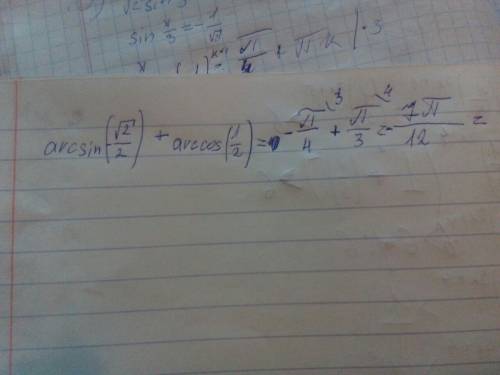 √2 sin 3
sin x/3 = - 1/√2
x (-1)^(k+1) π/4 + πk | · 3
arcsin(-√2/2) + arccos(1/2) = - π/4 \3 + π/3 \4 = - 7π/12 =